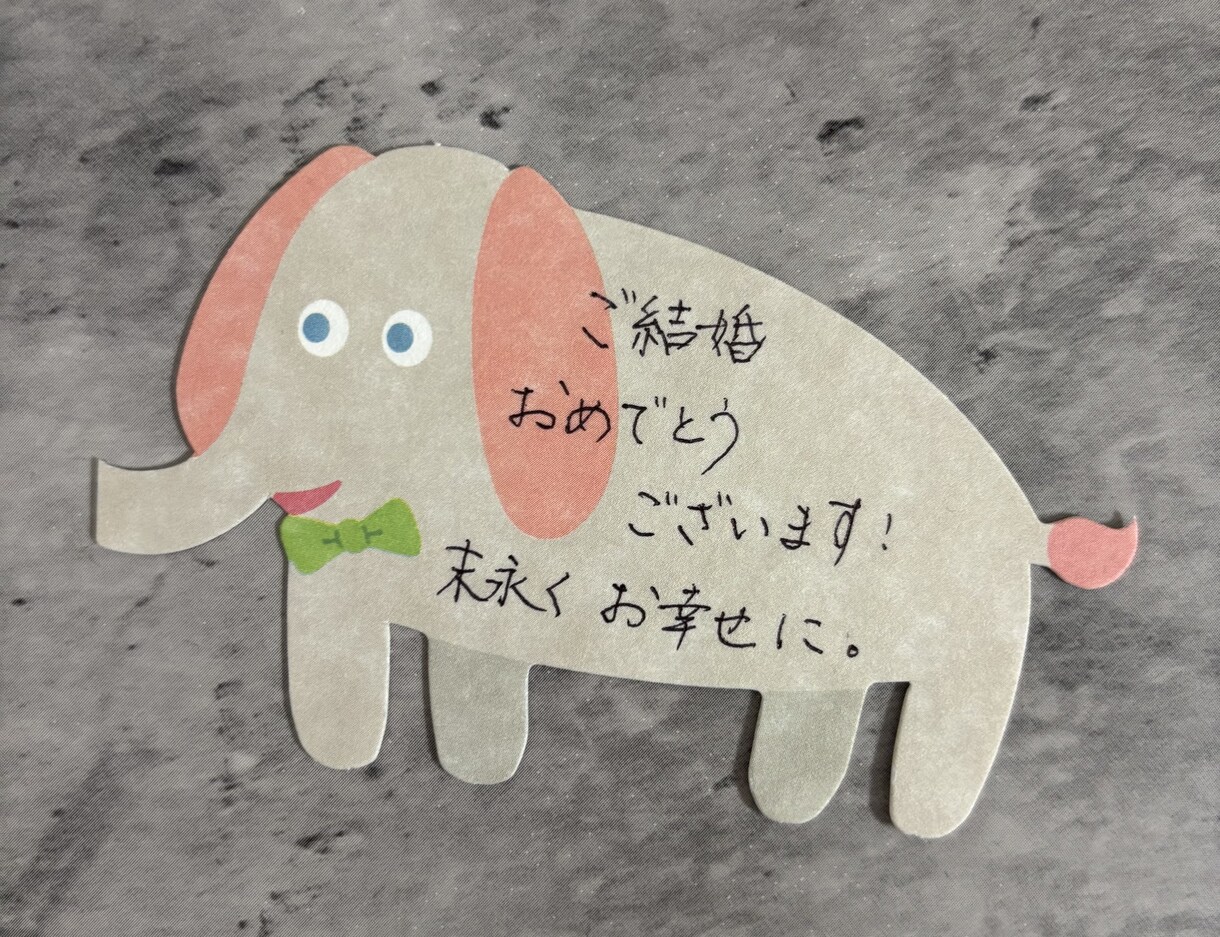 ご結婚
おめでとう
ございます!
末永く お幸せに。